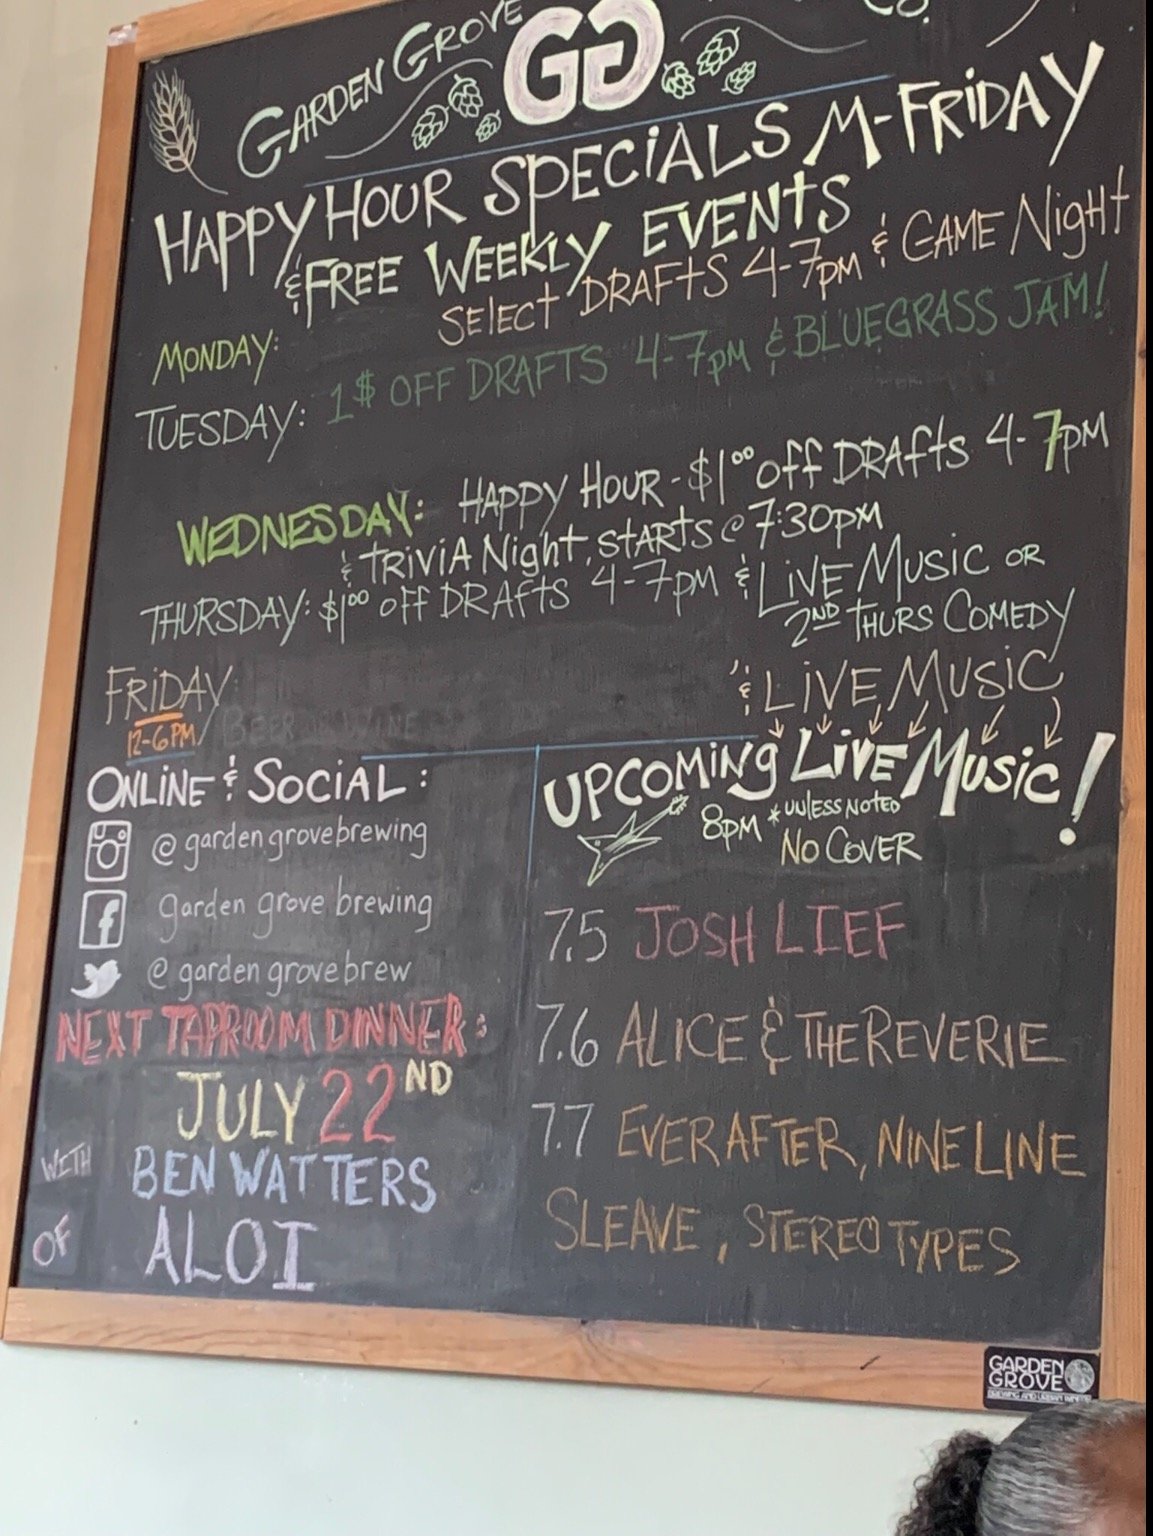 GARDEN GROVE GG CO.
HAPPY HOUR SPECIALS M-FRIDAY
& FREE WEEKLY EVENTS
MONDAY: SELECT DRAFTS 4-7PM & GAME NIGHT
TUESDAY: 1$ OFF DRAFTS 4-7PM & BLUEGRASS JAM!
WEDNESDAY: HAPPY HOUR - $1⁰⁰ OFF DRAFTS 4-7PM
& TRIVIA NIGHT STARTS @ 7:30PM
THURSDAY: $1⁰⁰ OFF DRAFTS 4-7PM & LIVE MUSIC OR
2ND THURS COMEDY
FRIDAY: & LIVE MUSIC
12-6PM / BEER WINE
ONLINE & SOCIAL:
@gardengrovebrewing
garden grove brewing
@gardengrovebrew
NEXT TAPROOM DINNER:
JULY 22ND
WITH BEN WATTERS
OF ALOI
UPCOMING LIVE MUSIC!
8PM *UNLESS NOTED
NO COVER
7.5 JOSH LIEF
7.6 ALICE & THE REVERIE
7.7 EVER AFTER, NINE LINE
SLEAVE, STEREO TYPES
GARDEN
GROVE